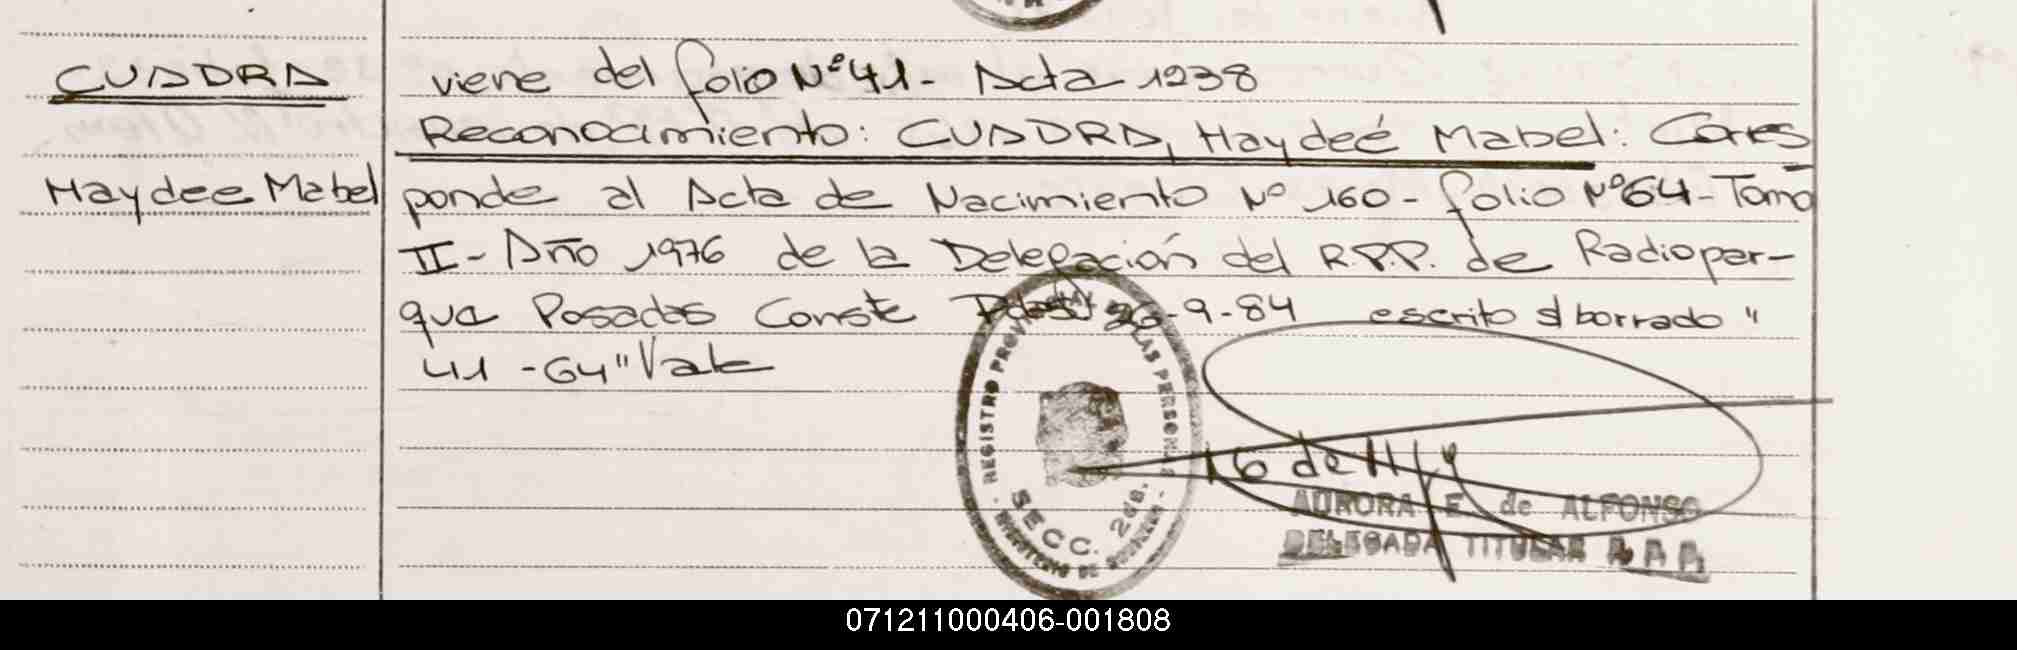 CUADRA
Haydee Mabel
viene del folio Nº 41 - Acta - 1238
Reconocimiento: CUADRA, Haydeé Mabel: Corres
ponde al Acta de Nacimiento Nº 160 - folio Nº 64 - Tomo
II - Año 1976 de la Delegación del R.P.P. de Radiopar-
que Posadas Conste Pdas, -9-84 escrito s/ borrado "
41 - 64" Vale
REGISTRO PROVINCIAL DE LAS PERSONAS
SECC. 268.
MINISTERIO DE GOBIERNO
AURORA E. de ALFONSO
DELEGADA TITULAR
071211000406-001808